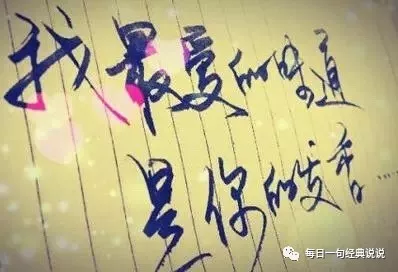 我最爱的味道
是你的发香……
每日一句经典说说